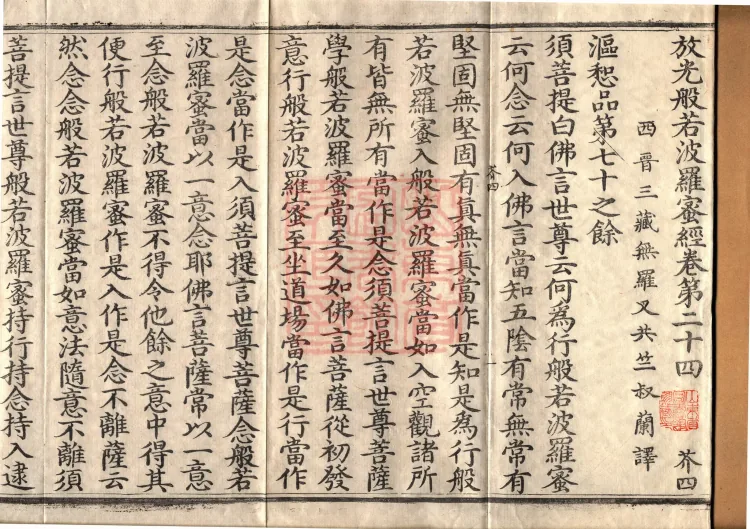 放光般若波羅蜜經卷第二十四 芥四
西晉三藏無羅叉共竺叔蘭譯
漚惒品第七十之餘
須菩提白佛言世尊云何為行般若波羅蜜
云何念云何入佛言當知五陰有常無常有
堅固無堅固有真無真當作是知是為行般
芥四
若波羅蜜入般若波羅蜜當如入空觀諸所
有皆無所有當作是念須菩提言世尊菩薩
學般若波羅蜜當至久如佛言菩薩從初發
意行般若波羅蜜至坐道場當作是行當作
是念當作是入須菩提言世尊菩薩念般若
波羅蜜當以一意念耶佛言菩薩常以一意
至念般若波羅蜜不得令他餘之意中得其
便行般若波羅蜜作是入作是念不離薩云
然念念般若波羅蜜當如意法隨意不離須
菩提言世尊般若波羅蜜持行持念持入逮